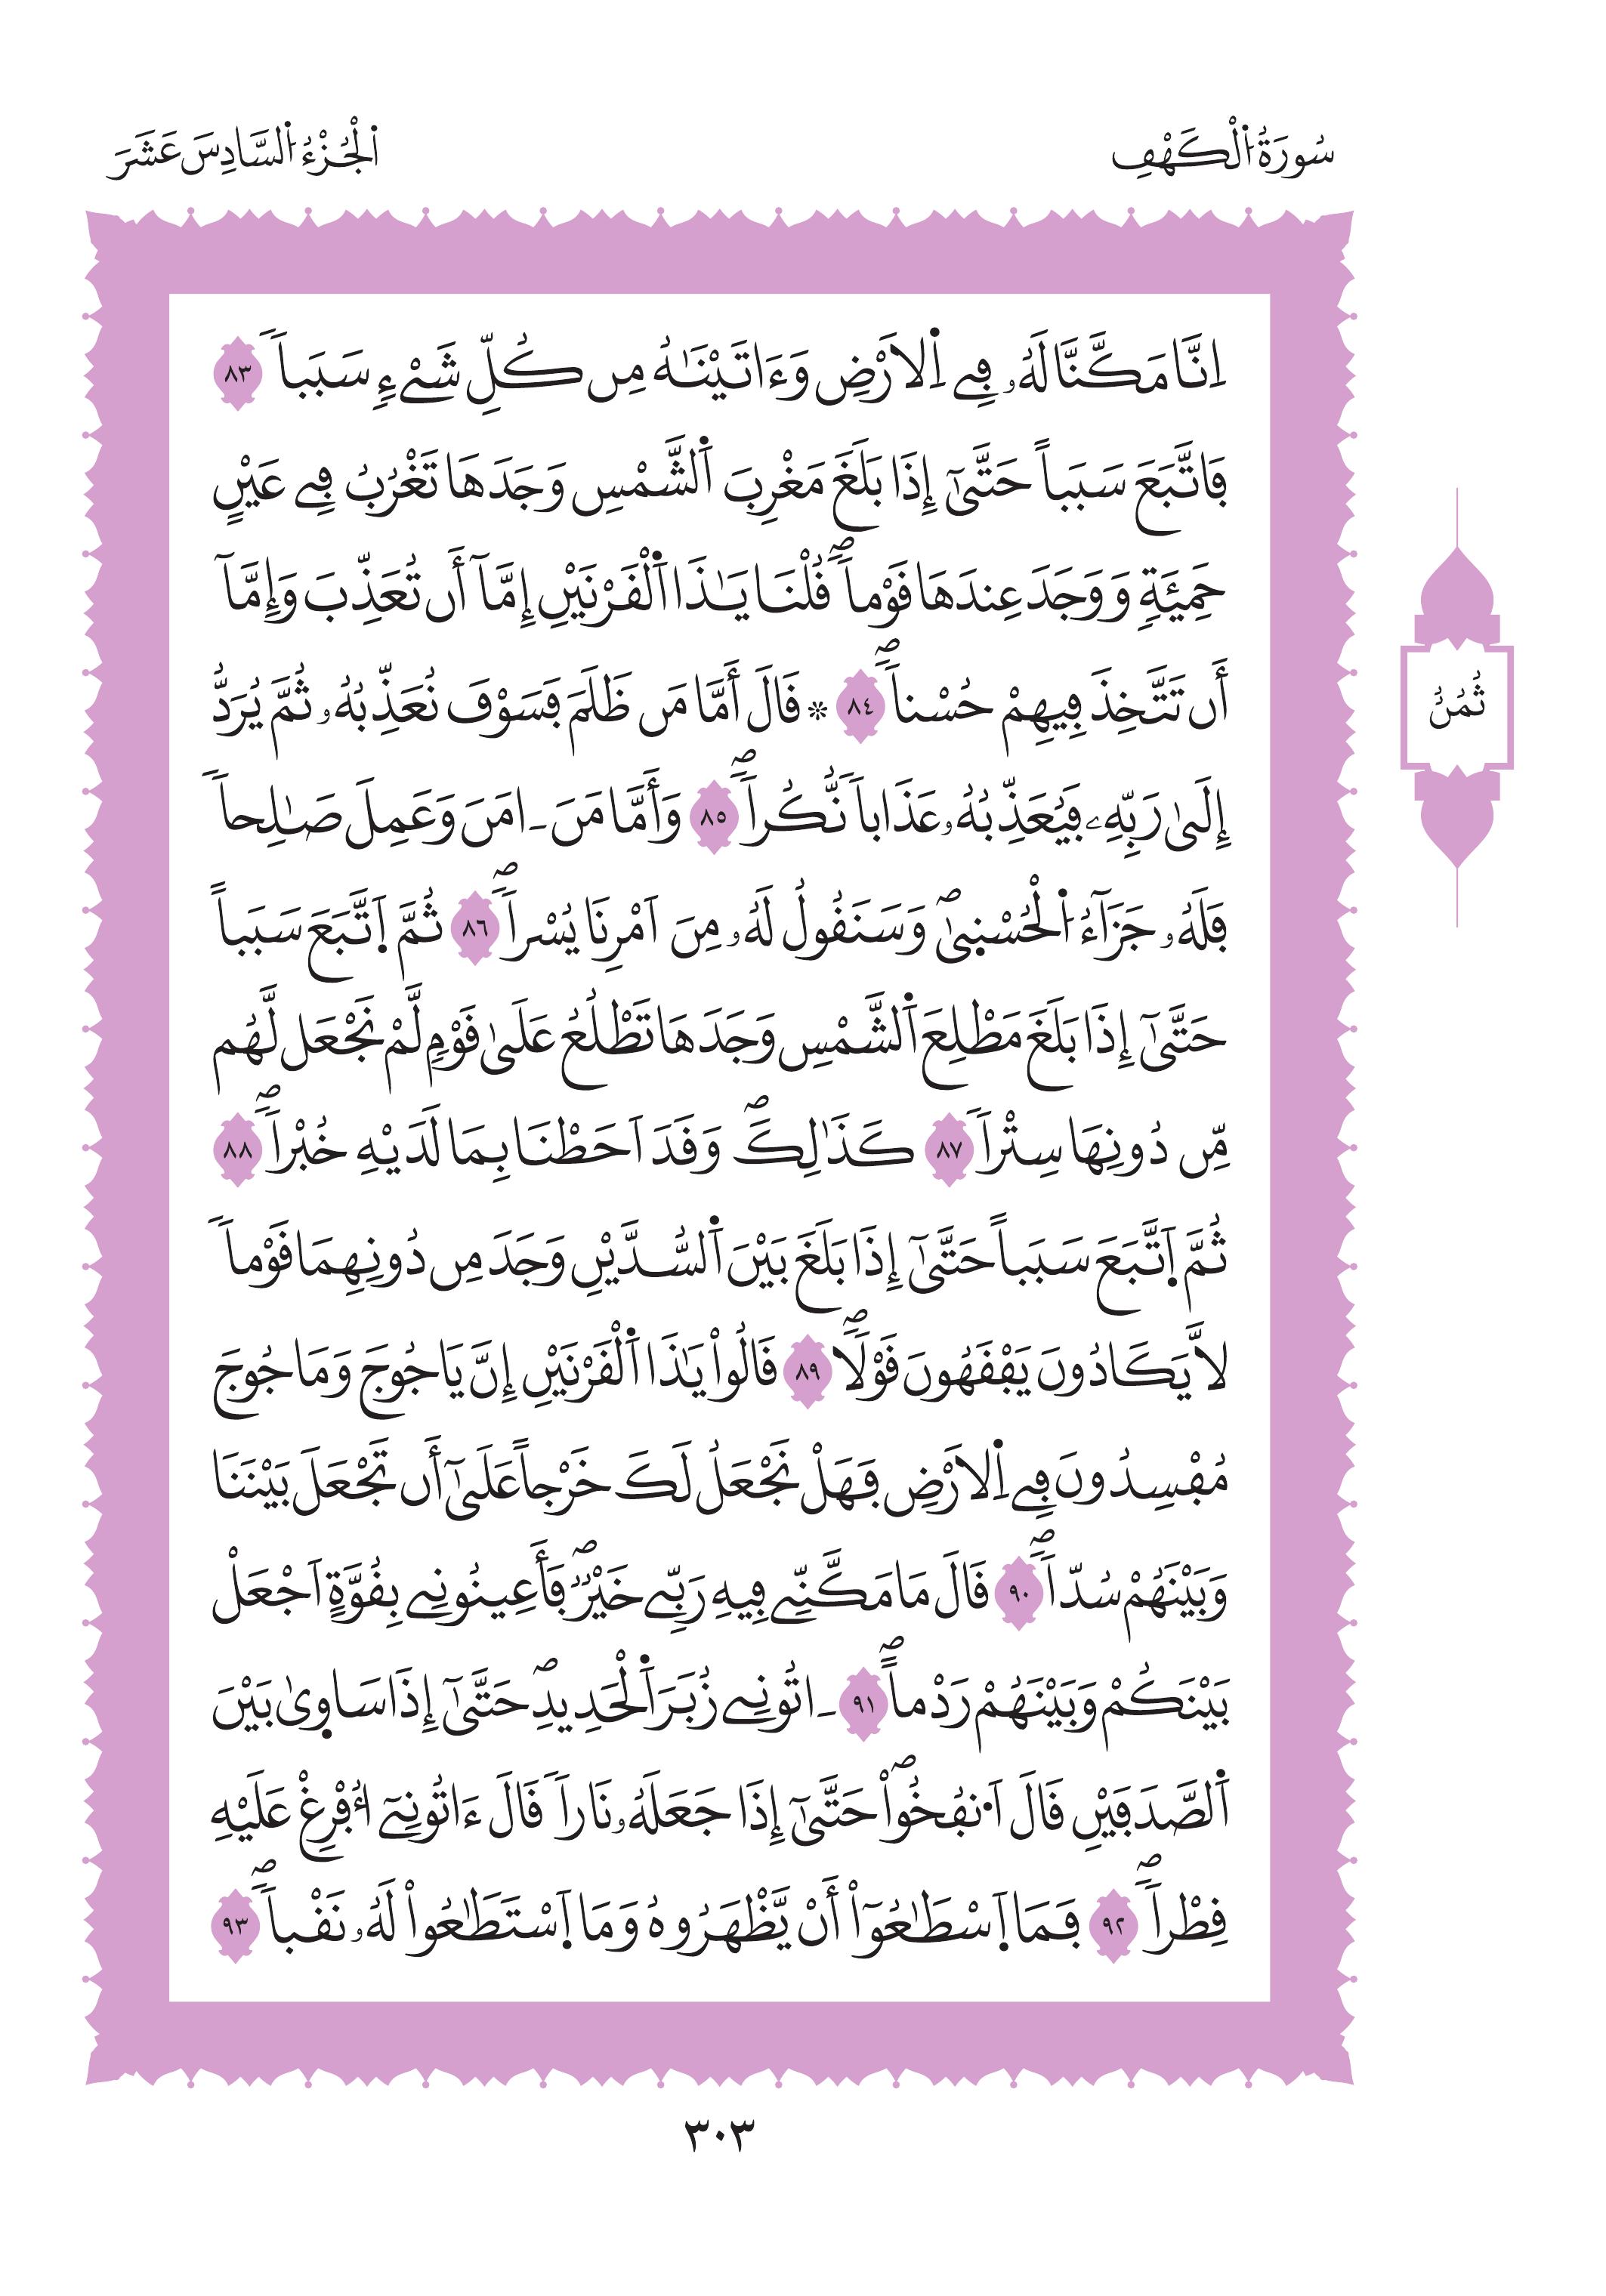 سُورَةُ اُ۬لْكَهْفِ
اَ۬لْجُزْءُ اُ۬لسَّادِسَ عَشَرَ
اِنَّا مَكَّنَّا لَهُۥ فِے اِ۬لَارْضِ وَءَاتَيْنَٰهُ مِن كُلِّ شَےْءٖ سَبَباٗ ٨٣
فَاتَّبَعَ سَبَباً حَتَّيٰٓ إِذَا بَلَغَ مَغْرِبَ اَ۬لشَّمْسِ وَجَدَهَا تَغْرُبُ فِے عَيْنٍ
حَمِئَةٖ وَوَجَدَ عِندَهَا قَوْماٗۖ قُلْنَا يَٰذَا اَ۬لْقَرْنَيْنِ إِمَّآ أَن تُعَذِّبَ وَإِمَّآ
أَن تَتَّخِذَ فِيهِمْ حُسْناٗۖ ٨٤ ۞ قَالَ أَمَّا مَن ظَلَمَ فَسَوْفَ نُعَذِّبُهُۥ ثُمَّ يُرَدُّ
إِلَيٰ رَبِّهِۦ فَيُعَذِّبُهُۥ عَذَاباٗ نُّكُراٗۖ ٨٥ وَأَمَّا مَنَ ـ امَنَ وَعَمِلَ صَٰلِحاٗ
فَلَهُۥ جَزَآءُ اُ۬لْحُسْنٜيٰۖ وَسَنَقُولُ لَهُۥ مِنَ اَمْرِنَا يُسْراٗۖ ٨٦ ثُمَّ اَ۪تَّبَعَ سَبَباً
حَتَّيٰٓ إِذَا بَلَغَ مَطْلِعَ اَ۬لشَّمْسِ وَجَدَهَا تَطْلُعُ عَلَيٰ قَوْمٖ لَّمْ نَجْعَل لَّهُم
مِّن دُونِهَا سِتْراٗ ٨٧ كَذَٰلِكَۖ وَقَدَ اَحَطْنَا بِمَا لَدَيْهِ خُبْراٗۖ ٨٨
ثُمَّ اَ۪تَّبَعَ سَبَباً حَتَّيٰٓ إِذَا بَلَغَ بَيْنَ اَ۬لسُّدَّيْنِ وَجَدَ مِن دُونِهِمَا قَوْماٗ
لَّا يَكَادُونَ يَفْقَهُونَ قَوْلاٗۖ ٨٩ قَالُواْ يَٰذَا اَ۬لْقَرْنَيْنِ إِنَّ يَاجُوجَ وَمَاجُوجَ
مُفْسِدُونَ فِے اِ۬لَارْضِ فَهَلْ نَجْعَلُ لَكَ خَرْجاً عَلَيٰٓ أَن تَجْعَلَ بَيْنَنَا
وَبَيْنَهُمْ سُدّاٗۖ ٩٠ قَالَ مَا مَكَّنِّے فِيهِ رَبِّے خَيْرٞۖ فَأَعِينُونِے بِقُوَّةٍ اَجْعَلْ
بَيْنَكُمْ وَبَيْنَهُمْ رَدْماًۖ ٩١ ـ اتُونِے زُبَرَ اَ۬لْحَدِيدِۖ حَتَّيٰٓ إِذَا سَاو۪يٰ بَيْنَ
اَ۬لصَّدَفَيْنِ قَالَ اَ۟نفُخُواْۖ حَتَّيٰٓ إِذَا جَعَلَهُۥ نَاراٗ قَالَ ءَاتُونِےٓ أُفْرِغْ عَلَيْهِ
قِطْراٗۖ ٩٢ فَمَا اَ۪سْطَٰعُوٓاْ أَنْ يَّظْهَرُوهُ وَمَا اَ۪سْتَطَٰعُواْ لَهُۥ نَقْباٗۖ ٩٣
ثُمُنُ
٣٠٣